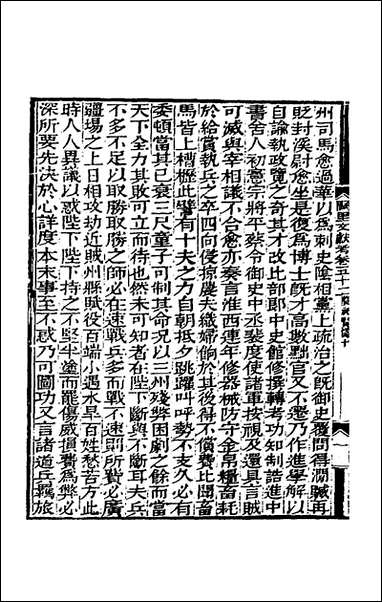 闕里文獻考卷五十二
州司馬愈過華以為刺史陰相黨上疏治之既御史覆問得澗贓再
貶封溪尉愈坐是復為博士既才高數黜官又不遷乃作進學解以
自諭執政覽之奇其才改比部郎中史館修撰轉考功知制誥進中
書舍人初憲宗將平蔡令御史中丞裴度使諸軍按視及還具言賊
可滅與宰相議不合愈亦奏言淮西連年修器械防守金帛糧畜耗
於給賞執兵之卒四向侵掠農夫織婦餉於其後得不償費比聞畜
馬皆上槽櫪此譬有十夫之力自朝抵夕跳躍叫呼勢不支久必有
委頓當其已衰三尺童子可制其命況以三州殘弊困劇之餘而當
天下全力其敗可立而待也然未可知者在陛下斷與不斷耳夫兵
不多不足以取勝取勝之師必在速戰兵多而戰不速則所費必廣
疆場之上日相攻劫近賊州縣賦役百端小遇水旱百姓愁苦方此
時人人異議以惑陛下陛下持之不堅半塗而罷傷威損費為弊必
深所要先決於心詳度本末事至不惑乃可圖功又言諸道兵羈旅